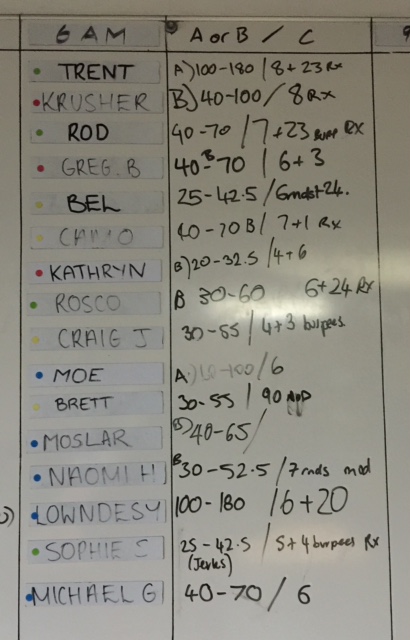 6 AM A or B / C 9
TRENT A) 100-180 / 8 + 23 Rx
KRUSHER B) 40-100 / 8 Rx
ROD 40-70 / 7 + 23 Rx
GREG. B 40-70 B / 6 + 3
BEL 25-42.5 / 6
CAMO 40-70 B / 7+1 Rx
KATHRYN B) 20-32.5 / 4+6
ROSCO B 30-60 6+24 Rx
CRAIG J 30-55 / 4+3 burpees.
MOE A) -100 / 6
BRETT 30-55 / 90
MOSLAR B) 40-65 /
NAOMI H B 30-52.5 / 7 rnds mod
LOWNDESY 100-180 / 6+20
SOPHIE S 25-42.5 / 5+4 burpees Rx
(Jerks)
MICHAEL G 40-70 / 6